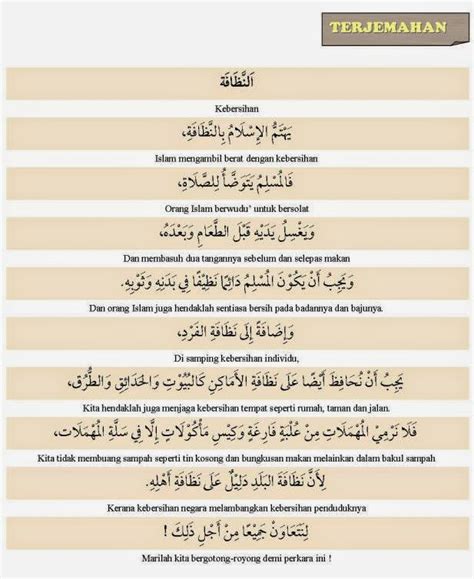 TERJEMAHAN
اَلنَّظَافَة
Kebersihan
يَهْتَمُّ الإِسْلَامُ بِالنَّظَافَةِ،
Islam mengambil berat dengan kebersihan
فَالْمُسْلِمُ يَتَوَضَّأُ لِلصَّلَاةِ،
Orang Islam berwudu’ untuk bersolat
وَيَغْسِلُ يَدَيْهِ قَبْلَ الطَّعَامِ وَبَعْدَهُ،
Dan membasuh dua tangannya sebelum dan selepas makan
وَيَجِبُ أَنْ يَكُوْنَ الْمُسْلِمُ دَائِمًا نَظِيْفًا فِي بَدَنِهِ وَثَوْبِهِ.
Dan orang Islam juga hendaklah sentiasa bersih pada badannya dan bajunya.
وَإِضَافَةً إِلَى نَظَافَةِ الفَرْدِ،
Di samping kebersihan individu,
يَجِبُ أَنْ نُحَافِظَ أَيْضًا عَلَى نَظَافَةِ الأَمَاكِنِ كَالْبُيُوْتِ وَالْحَدَائِقِ وَالطُّرُقِ،
Kita hendaklah juga menjaga kebersihan tempat seperti rumah, taman dan jalan.
فَلَا نَرْمِيْ الْمُهْمَلَاتِ مِنْ عُلْبَةٍ فَارِغَةٍ وَكِيْسِ مَأْكُوْلَاتٍ إِلَّا فِي سَلَّةِ الْمُهْمَلَاتِ،
Kita tidak membuang sampah seperti tin kosong dan bungkusan makan melainkan dalam bakul sampah
لِأَنَّ نَظَافَةَ الْبَلَدِ دَلِيْلٌ عَلَى نَظَافَةِ أَهْلِهِ.
Kerana kebersihan negara melambangkan kebersihan penduduknya
لِنَتَعَاوَنْ جَمِيْعًا مِنْ أَجْلِ ذَلِكَ !
Marilah kita bergotong-royong demi perkara ini !